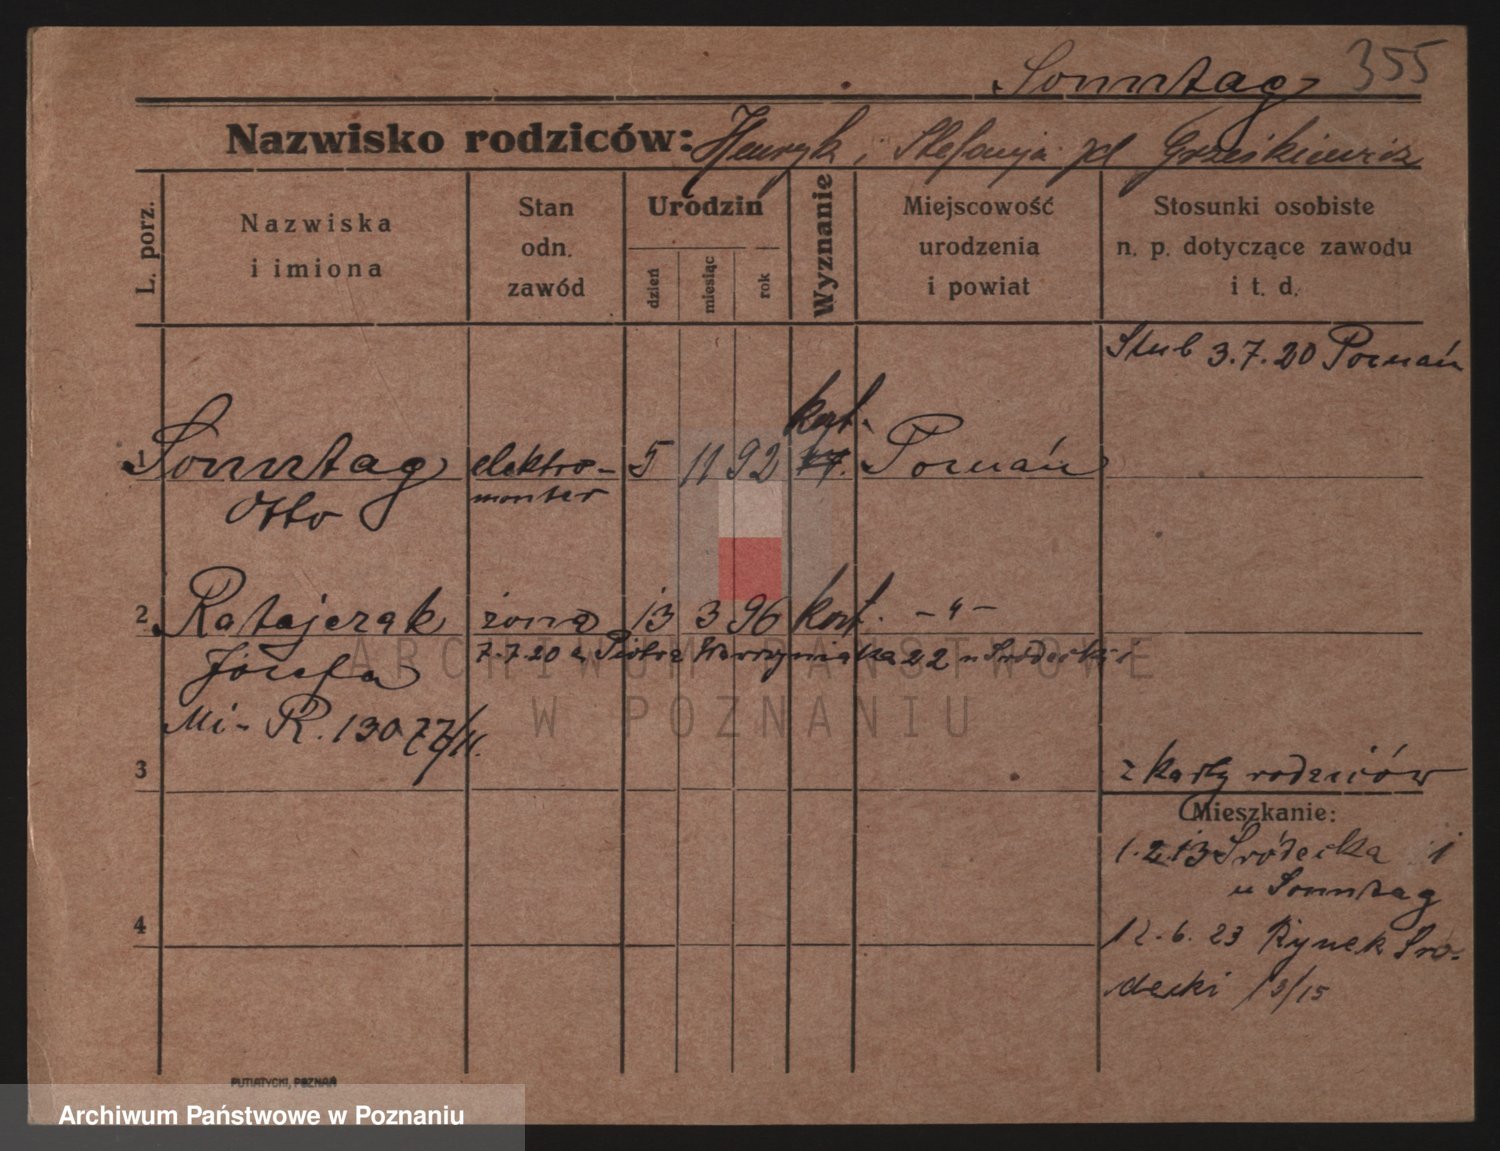 Sonntag 355
Nazwisko rodziców: Henryk i Stefanja
L. porz.
Nazwiska
i imiona
Stan
odn.
zawód
Urodzin
dzień
miesiąc
rok
Wyznanie
Miejscowość
urodzenia
i powiat
Stosunki osobiste
n. p. dotyczące zawodu
i t. d.
Ślub 3.7.20 Poznań
kat.
1 Sonntag elektro- 5 11 92 Poznań
Otto monter
2 Ratajczak żona 13 3 96 kat. -"-
Józefa 7.7.20 Piotra Wawrzyniaka 22 Śródecki
ARCHIWUM PAŃSTWOWE
W POZNANIU
Mi- R. 13077/II.
3
z karty rodziców
Mieszkanie:
1.2.13 Śródecka 1
u Sonntag
4
12.6.23 Rynek Śró-
decki /3/15
PUTIATYCKI, POZNAŃ
Archiwum Państwowe w Poznaniu